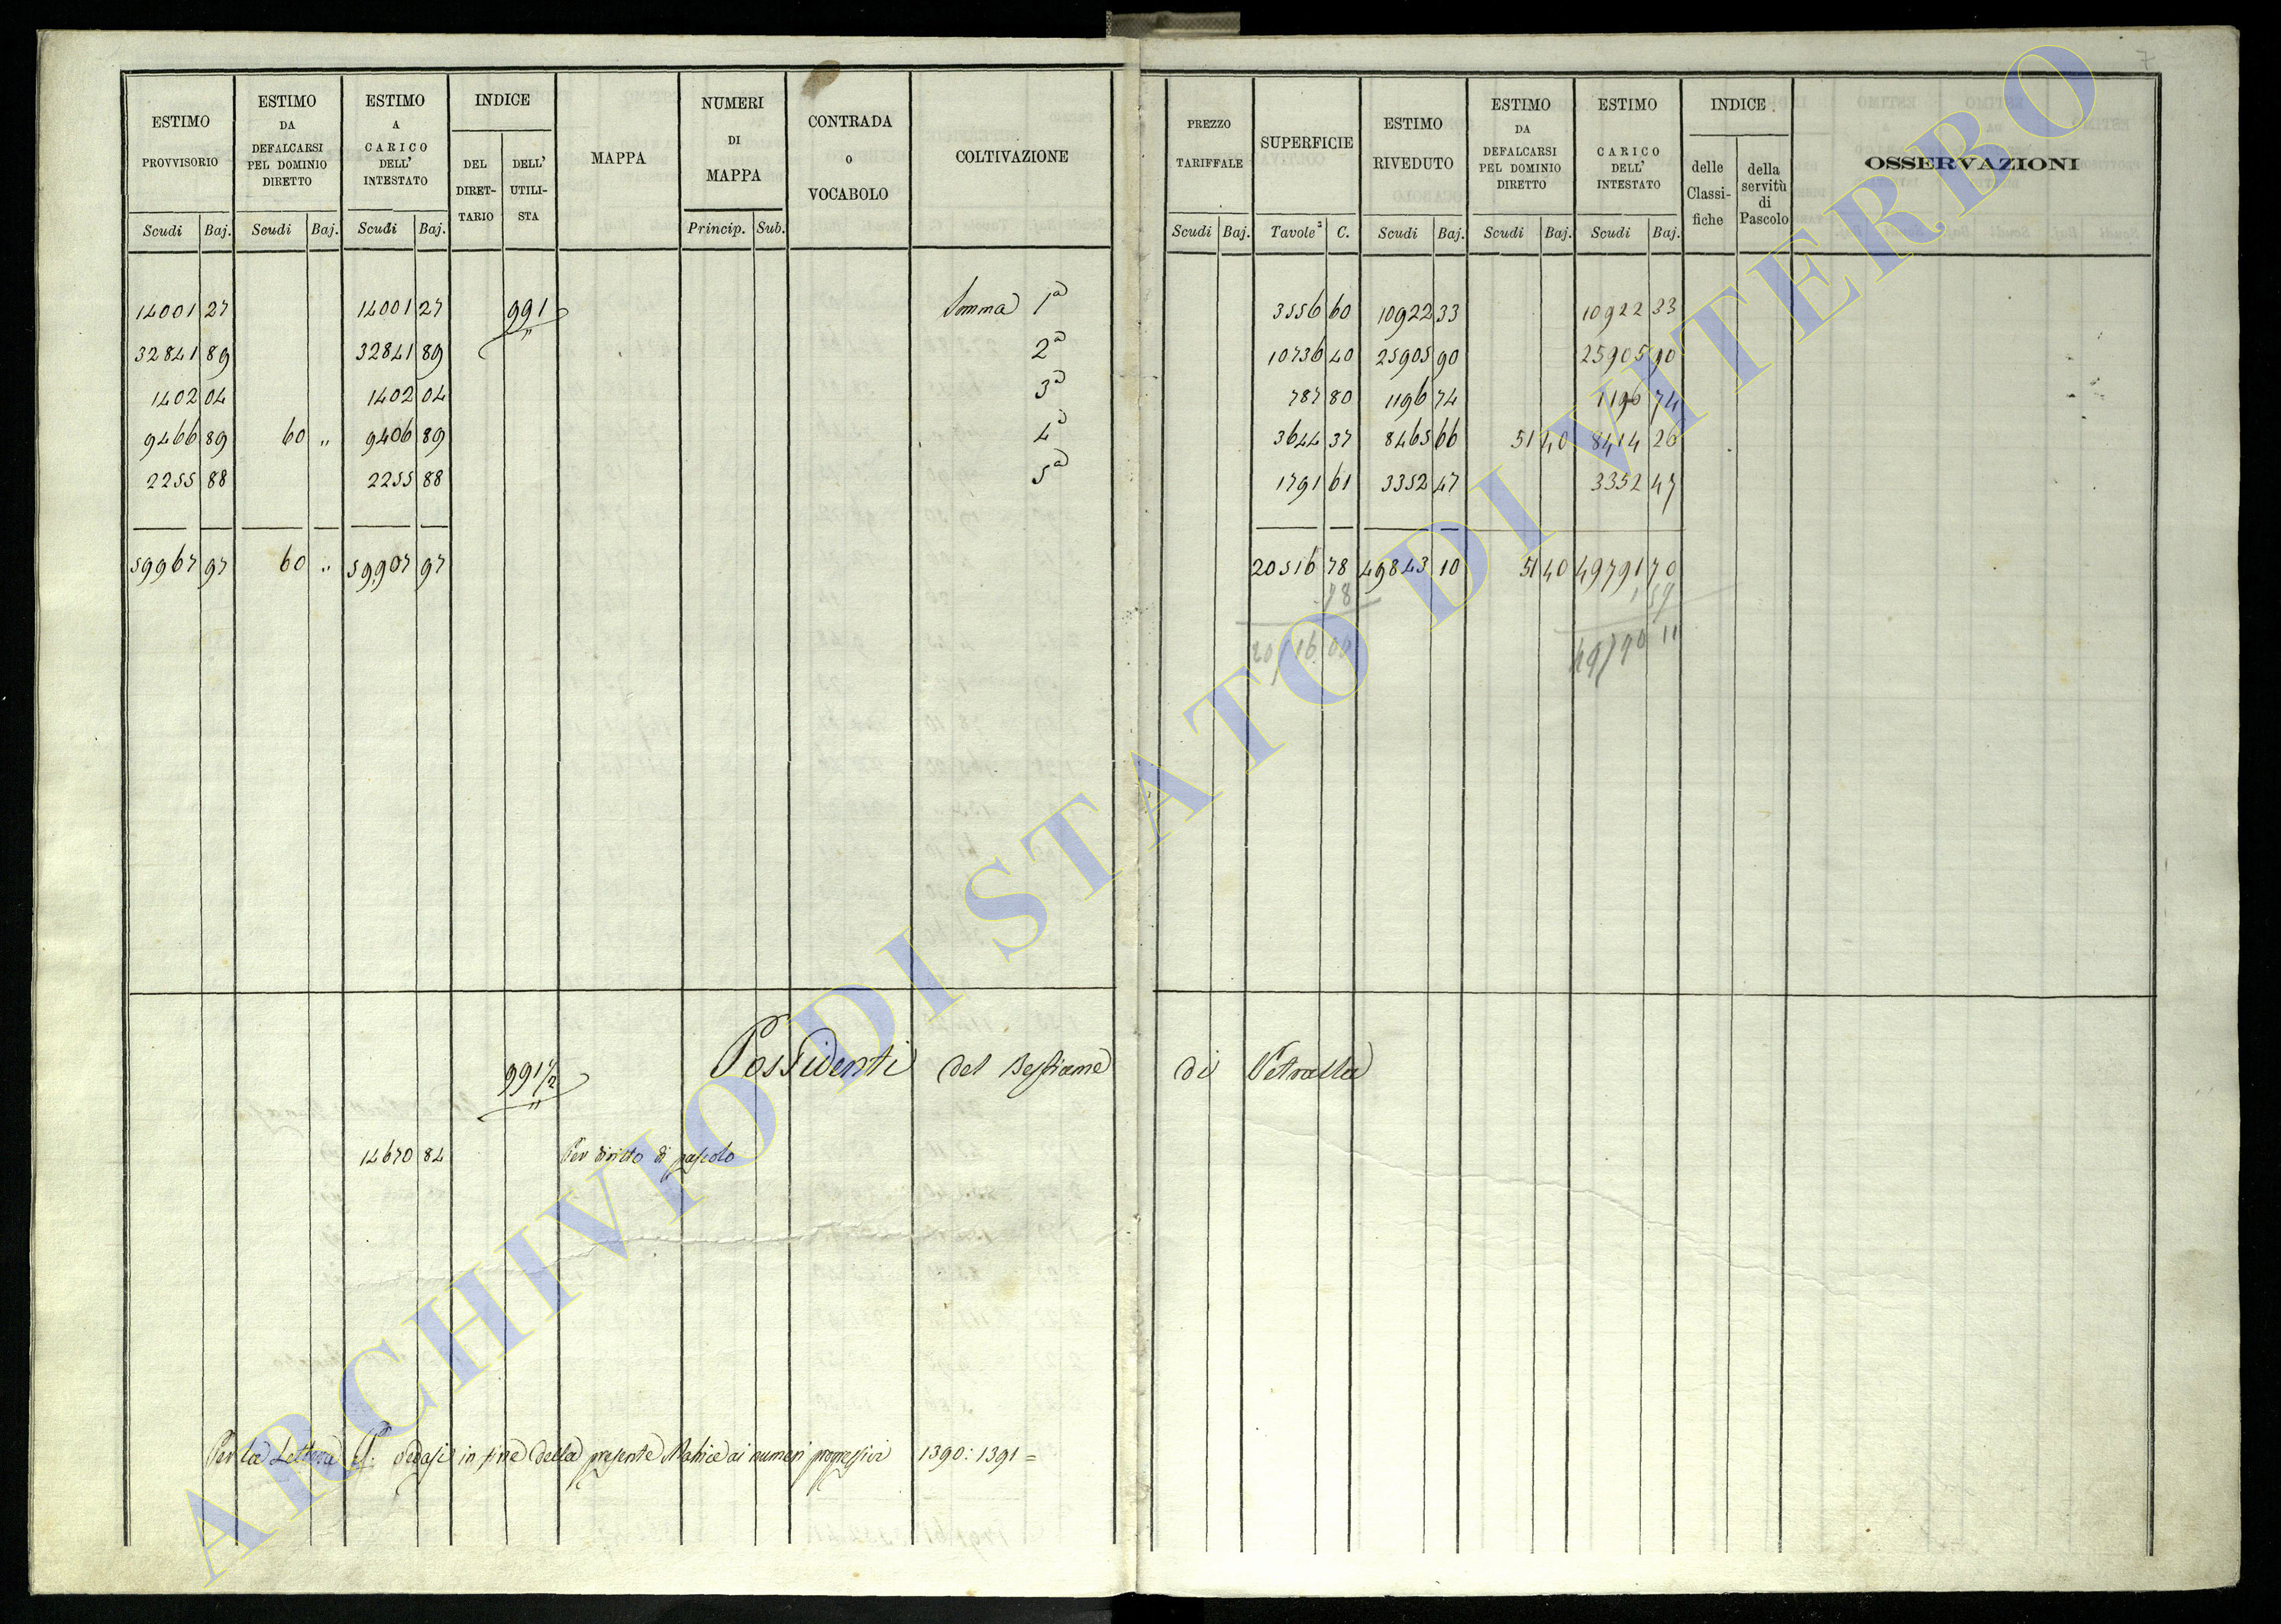 7
ESTIMO PROVVISORIO Scudi Baj. | ESTIMO DA DEFALCARSI PEL DOMINIO DIRETTO Scudi Baj. | ESTIMO A CARICO DELL' INTESTATO Scudi Baj. | INDICE DEL DIRET-TARIO | DELL' UTILI-STA | MAPPA | NUMERI DI MAPPA Princip. Sub. | CONTRADA O VOCABOLO | COLTIVAZIONE | PREZZO TARIFFALE Scudi Baj. | SUPERFICIE Tavole C. | ESTIMO RIVEDUTO Scudi Baj. | ESTIMO DA DEFALCARSI PEL DOMINIO DIRETTO Scudi Baj. | ESTIMO CARICO DELL' INTESTATO Scudi Baj. | INDICE delle Classi-fiche | della servitù di Pascolo | OSSERVAZIONI
14001 27 14001 27 991 Somma 1a 3556 60 10922 33 10922 33
32841 89 32841 89 2a 10736 40 25905 90 25905 90
1402 04 1402 04 3a 787 80 1196 74 1196 74
9466 89 60 „ 9406 89 4a 3644 37 8465 66 51 40 8414 26
2255 88 2255 88 5a 1791 61 3352 47 3352 47
59967 97 60 „ 59907 97 20516 78 49843 10 51 40 49791 70
78 1 59
20516 00 49790 11
991 1/2 Possidenti del Bestiame di Vetralla
14670 84 Per diritto di pascolo
Per la Lettera vedasi in fine della presente Matrice ai numeri progressivi 1390: 1391 =
ARCHIVIO DI STATO DI VITERBO